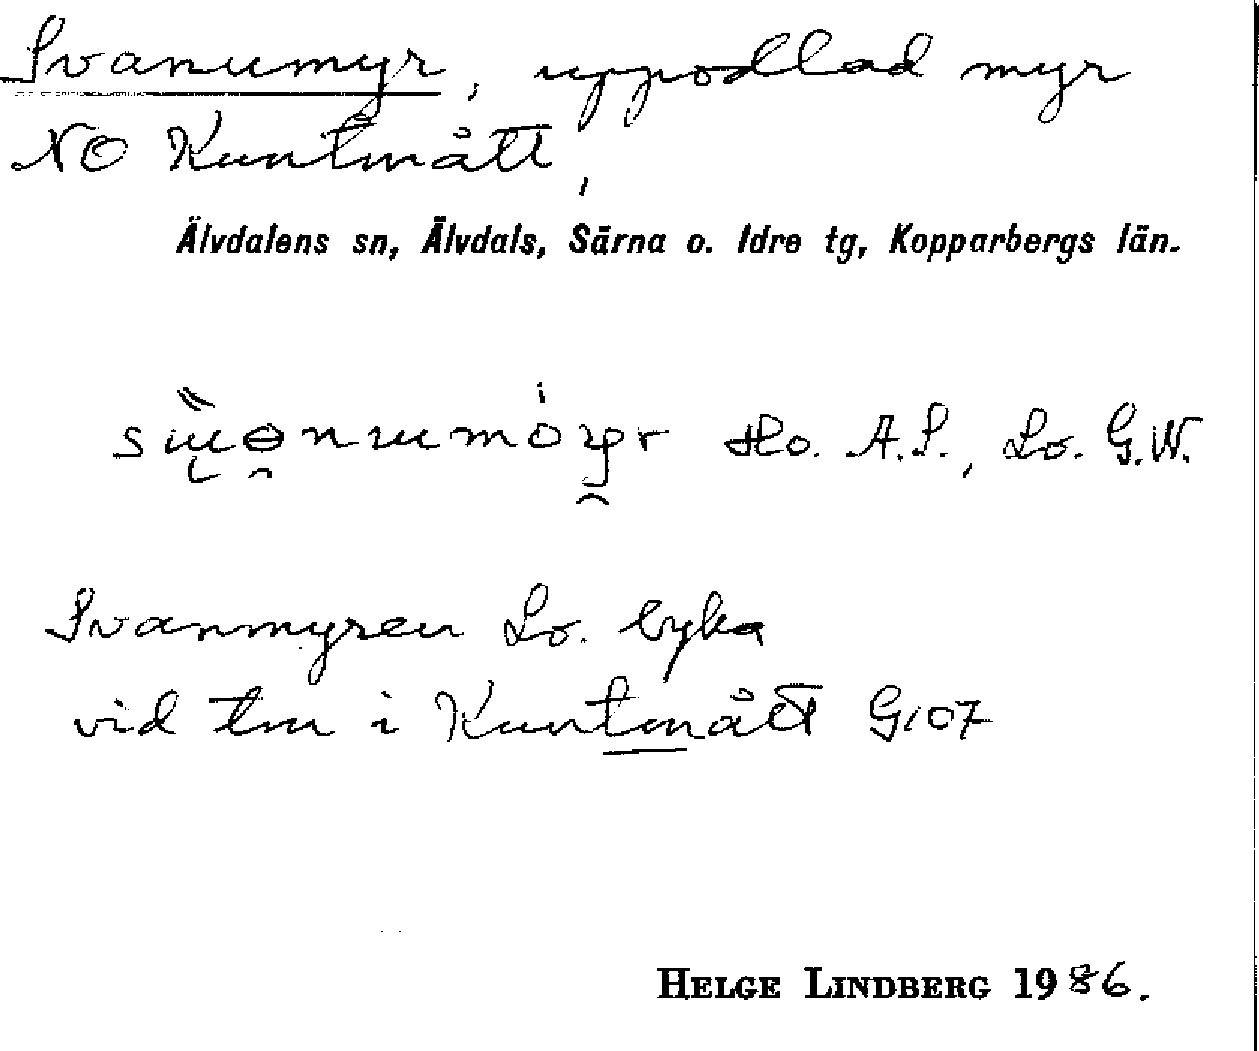 Svanumyr, uppodlad myr
NO Kuntmått,
Älvdalens sn, Älvdals, Särna o. Idre tg, Kopparbergs län.
Ho. A.S., Lo. G.W.
Svanmyren Lo. byka
vid tm i Kuntmått G107
HELGE LINDBERG 1986.